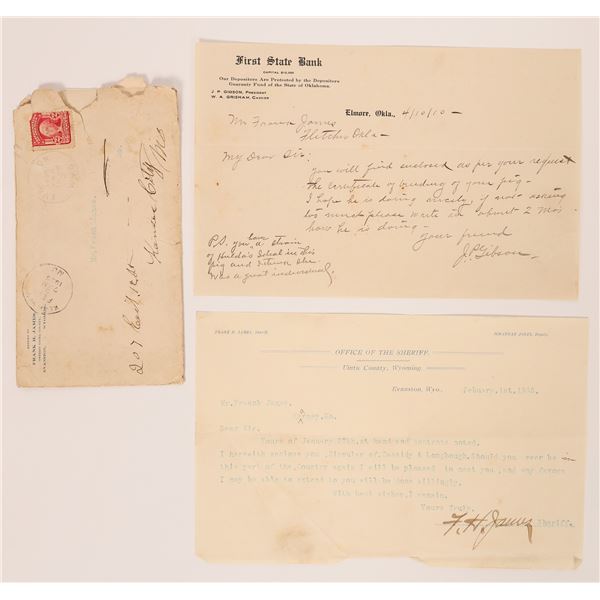 Mr Frank James.
Kansas City Mo
207
FRANK H. JAMES
EVANSTON, WYOMING
First State Bank
CAPITAL $10,000
Our Depositors Are Protected by the Depositors
Guaranty Fund of the State of Oklahoma.
J. P. GIBSON, President
W. A. GRISHAM, Cashier
Elmore, Okla., 4/10/10-
Mr Frank James
Fletcher Okla-
My Dear Sir:
You will find enclosed as per your request
the certificate of breeding of your pig-
I hope he is doing nicely, if not asking
too much please write me about 2 Mos
how he is doing-
Your friend
J.P. Gibson-
P.S. you have a strain
of Hulda's Ideal in this
pig and
was a great individual.
FRANK H. JAMES, Sheriff.
JONES, Deputy.
OFFICE OF THE SHERIFF.
Uinta County, Wyoming.
Evanston, Wyo. February.1st.
Mr.Frank James.
Mo.
Dear Sir.
Yours of January 27th.at hand and contents noted.
I herewith you ,Circular of.Cassidy & Longbough.Should you ever be in
this part of the.Country again I will be pleased to meet you,and any favors
I may be able to extend to you will be done willingly.
With best wishes,I remain.
Yours Truly.
F.H.James Sheriff.